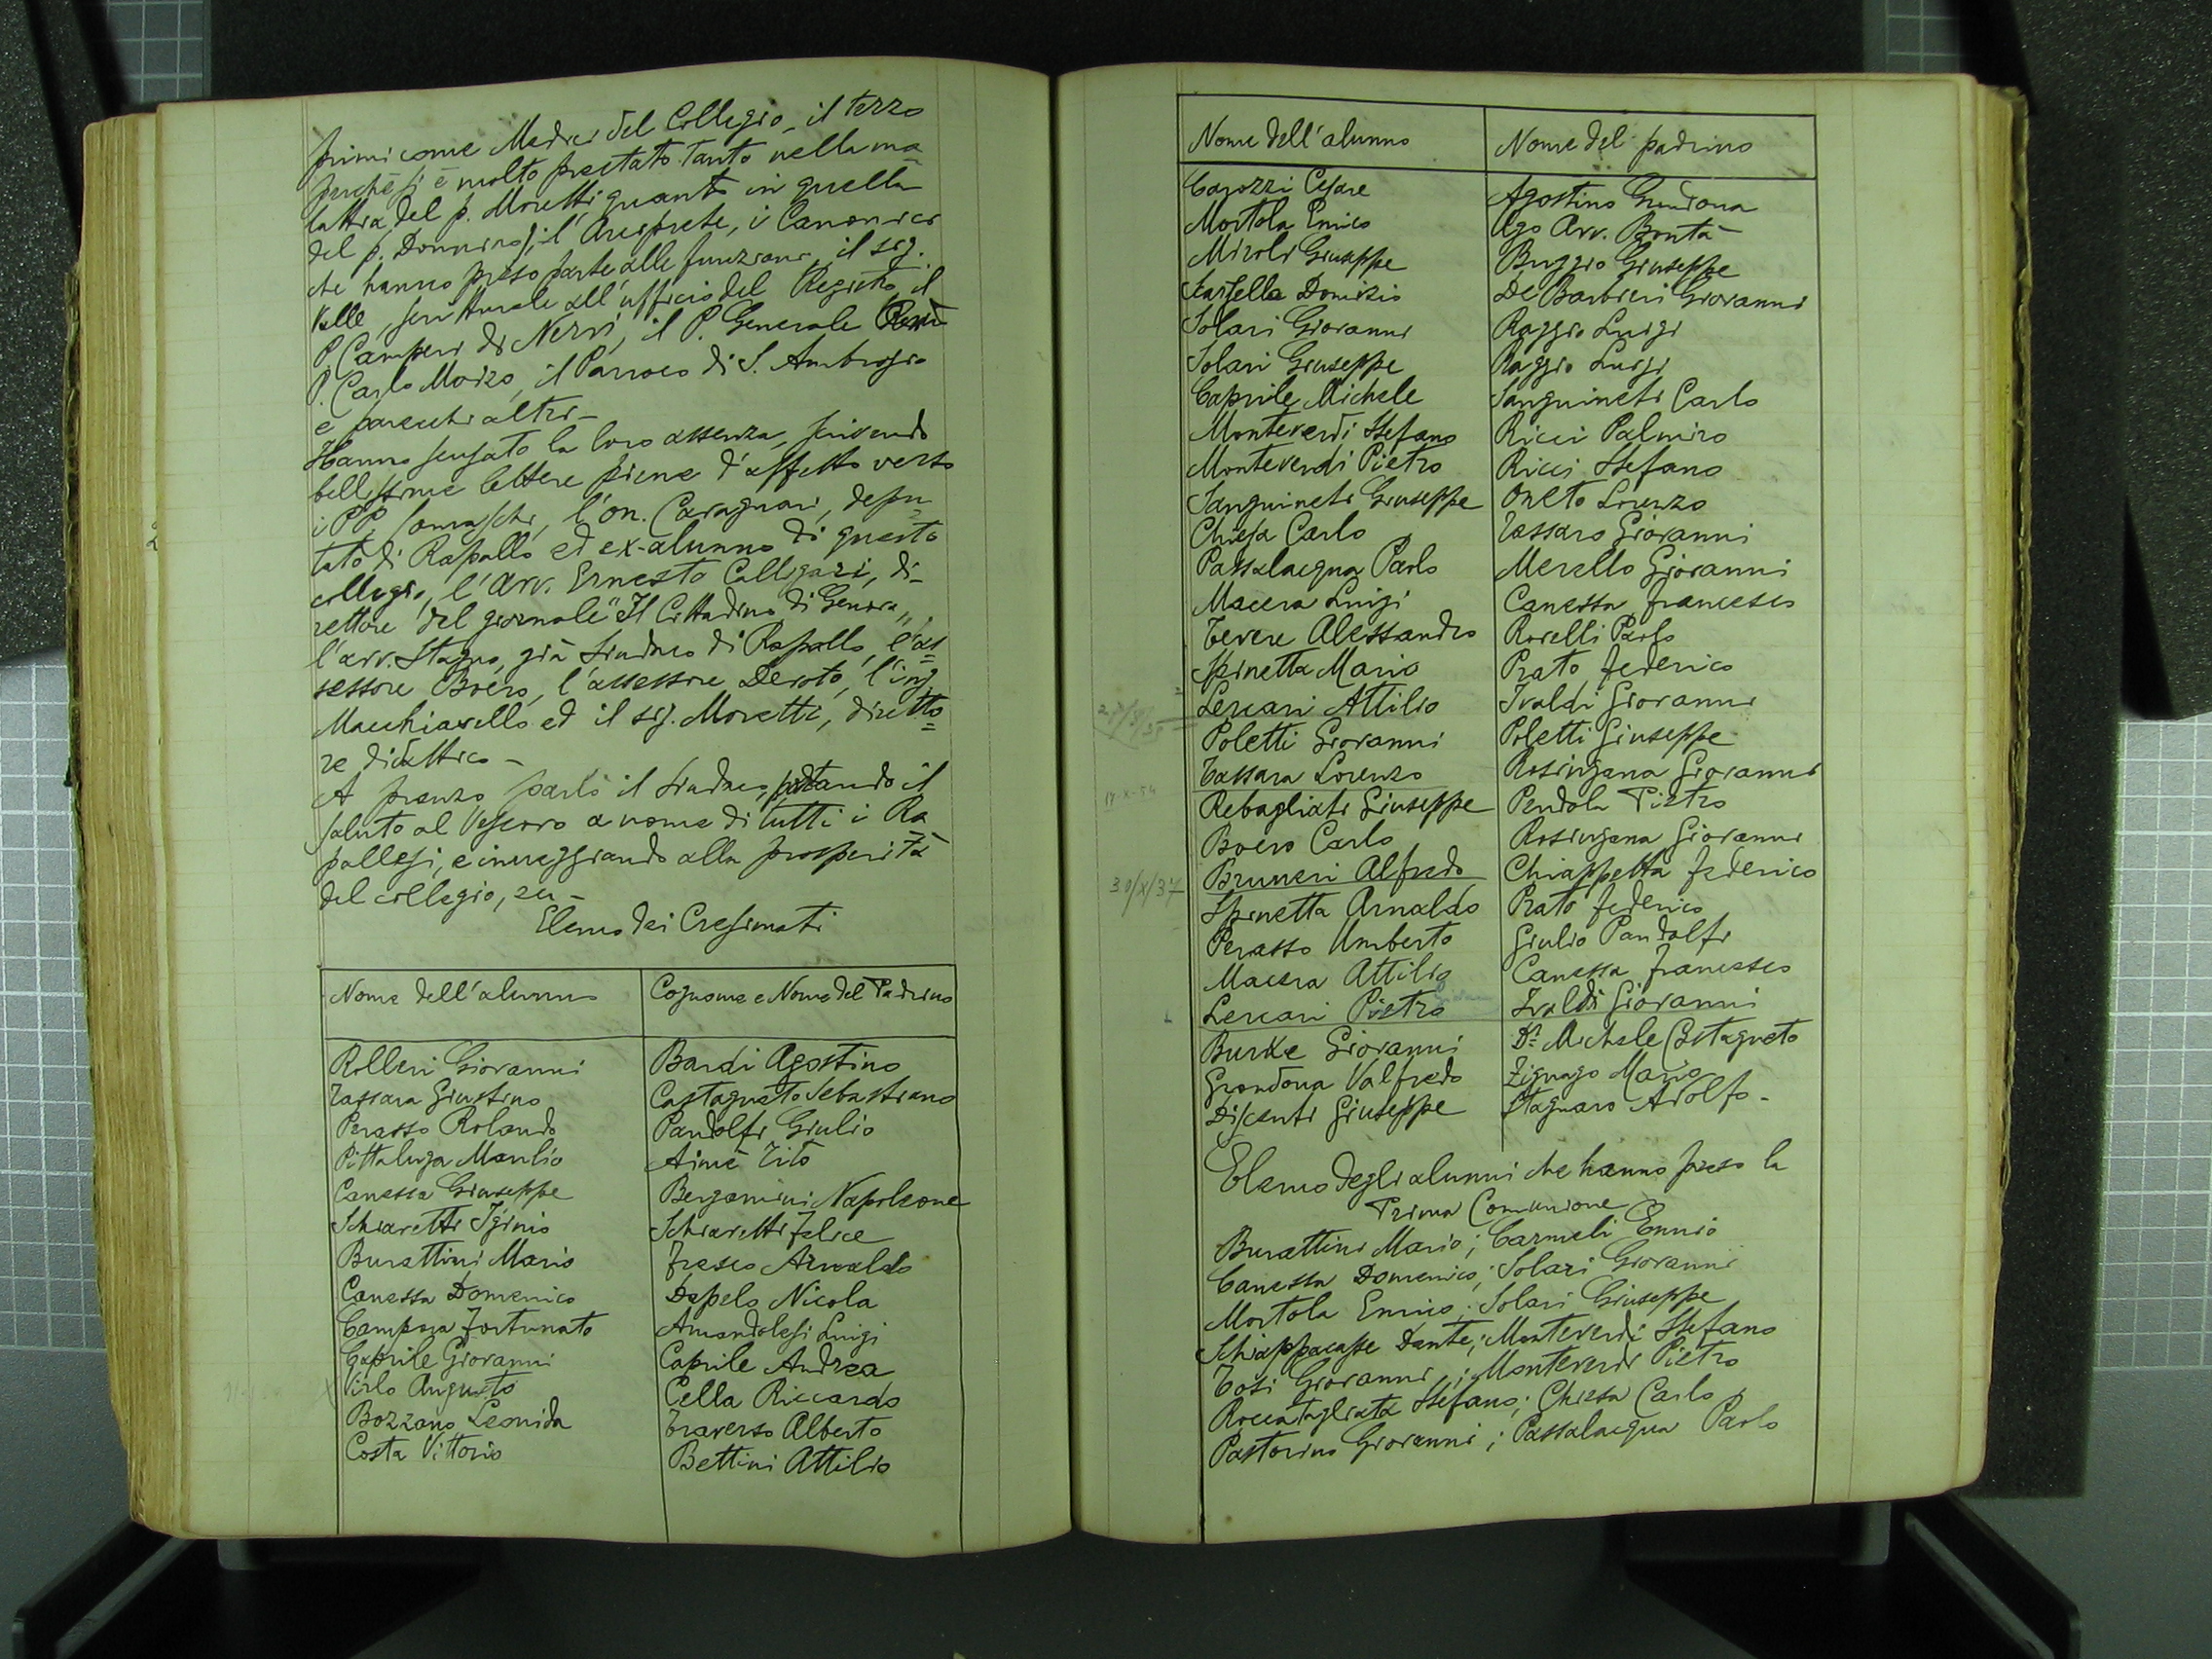 primi come Medici del Collegio, il terzo
perchè si è molto prestato tanto nella ma=
lattia del p. Moretti quanto in quella
del p. Donnino), il Arciprete, i Canonici
che hanno preso parte alle funzioni, il sig.
Valle, scritturale all'ufficio del Registro, il
P. Camperi di Nervi, il P. Generale
P. Carlo Moizo, il Parroco di S. Ambrogio
e parecchi altri -
Hanno scusato la loro assenza, scrivendo
bellissime lettere piene d'affetto verso
i PP. Somaschi, l'on. Cavagnari, depu=
tato di Rapallo ed ex-alunno di questo
collegio, l'avv. Ernesto Calligari, di-
rettore del giornale "Il Cittadino di Genova",
l'avv. Stagno, già Sindaco di Rapallo, l'as=
sessore Boero, l'assessore Devoto, l'ing.
Macchiavello ed il sig. Moretti, diretto=
re didattico -
A pranzo parlò il Sindaco, portando il
saluto al Vescovo a nome di tutti i Ra
pallesi, e inneggiando alla prosperità
del collegio, ecc -
Elenco dei Cresimati
Nome dell'alunno Cognome e Nome del Padrino
Rolleri Giovanni Bardi Agostino
Tassara Giustino Castagneto Sebastiano
Perasso Rolando Pandolfi Giulio
Pittaluga Manlio Aimè Tito
Canessa Giuseppe Bergamini Napoleone
Schiaretti Iginio Schiaretti Felice
Burattini Mario Fresco Arnaldo
Canessa Domenico Depelo Nicola
Campora Fortunato Amandolesi Luigi
Caprile Giovanni Caprile Andrea
Virlo Augusto Cella Riccardo
Bozzano Leonida Traverso Alberto
Costa Vittorio Bettini Attilio
Nome dell'alunno Nome del padrino
Carozzi Cesare Agostino Grondona
Mortola Enrico Ugo Avv. Bontà
Miroli Giuseppe Buggio Giuseppe
Scarsella Domizio De Barbieri Giovanni
Solari Giovanni Raggio Luigi
Solari Giuseppe Raggio Luigi
Caprile Michele Sanguineti Carlo
Monteverdi Stefano Ricci Palmiro
Monteverdi Pietro Ricci Stefano
Sanguineti Giuseppe Oneto Lorenzo
Chiesa Carlo Tassaro Giovanni
Passalacqua Paolo Merello Giovanni
Macera Luigi Canessa Francesco
Tevere Alessandro Rovelli Paolo
Spinetta Mario Prato Federico
Lercari Attilio Ivaldi Giovanni
Poletti Giovanni Poletti Giuseppe
Tassara Lorenzo Rosingana Giovanni
Rebagliati Giuseppe Pendola Pietro
Boero Carlo Rosingana Giovanni
30/X/37 Bruneri Alfredo Chiappetta Federico
Spinetta Arnaldo Prato Federico
Perasso Umberto Giulio Pandolfi
Macera Attilio Canessa Francesco
Lercari Pietro Ivaldi Giovanni
Burke Giovanni Dr. Michele Castagneto
Grondona Valfredo Zignago Mario
Discenti Giuseppe Stagnaro Adolfo -
Elenco degli alunni che hanno preso la
Prima Comunione
Burattini Mario; Carmeli Ennio
Canessa Domenico; Solari Giovanni
Mortola Enrico; Solari Giuseppe
Schiappacasse Dante; Monteverdi Stefano
Tosi Giovanni; Monteverdi Pietro
Roccatagliata Stefano; Chiesa Carlo
Pastorino Giovanni; Passalacqua Paolo